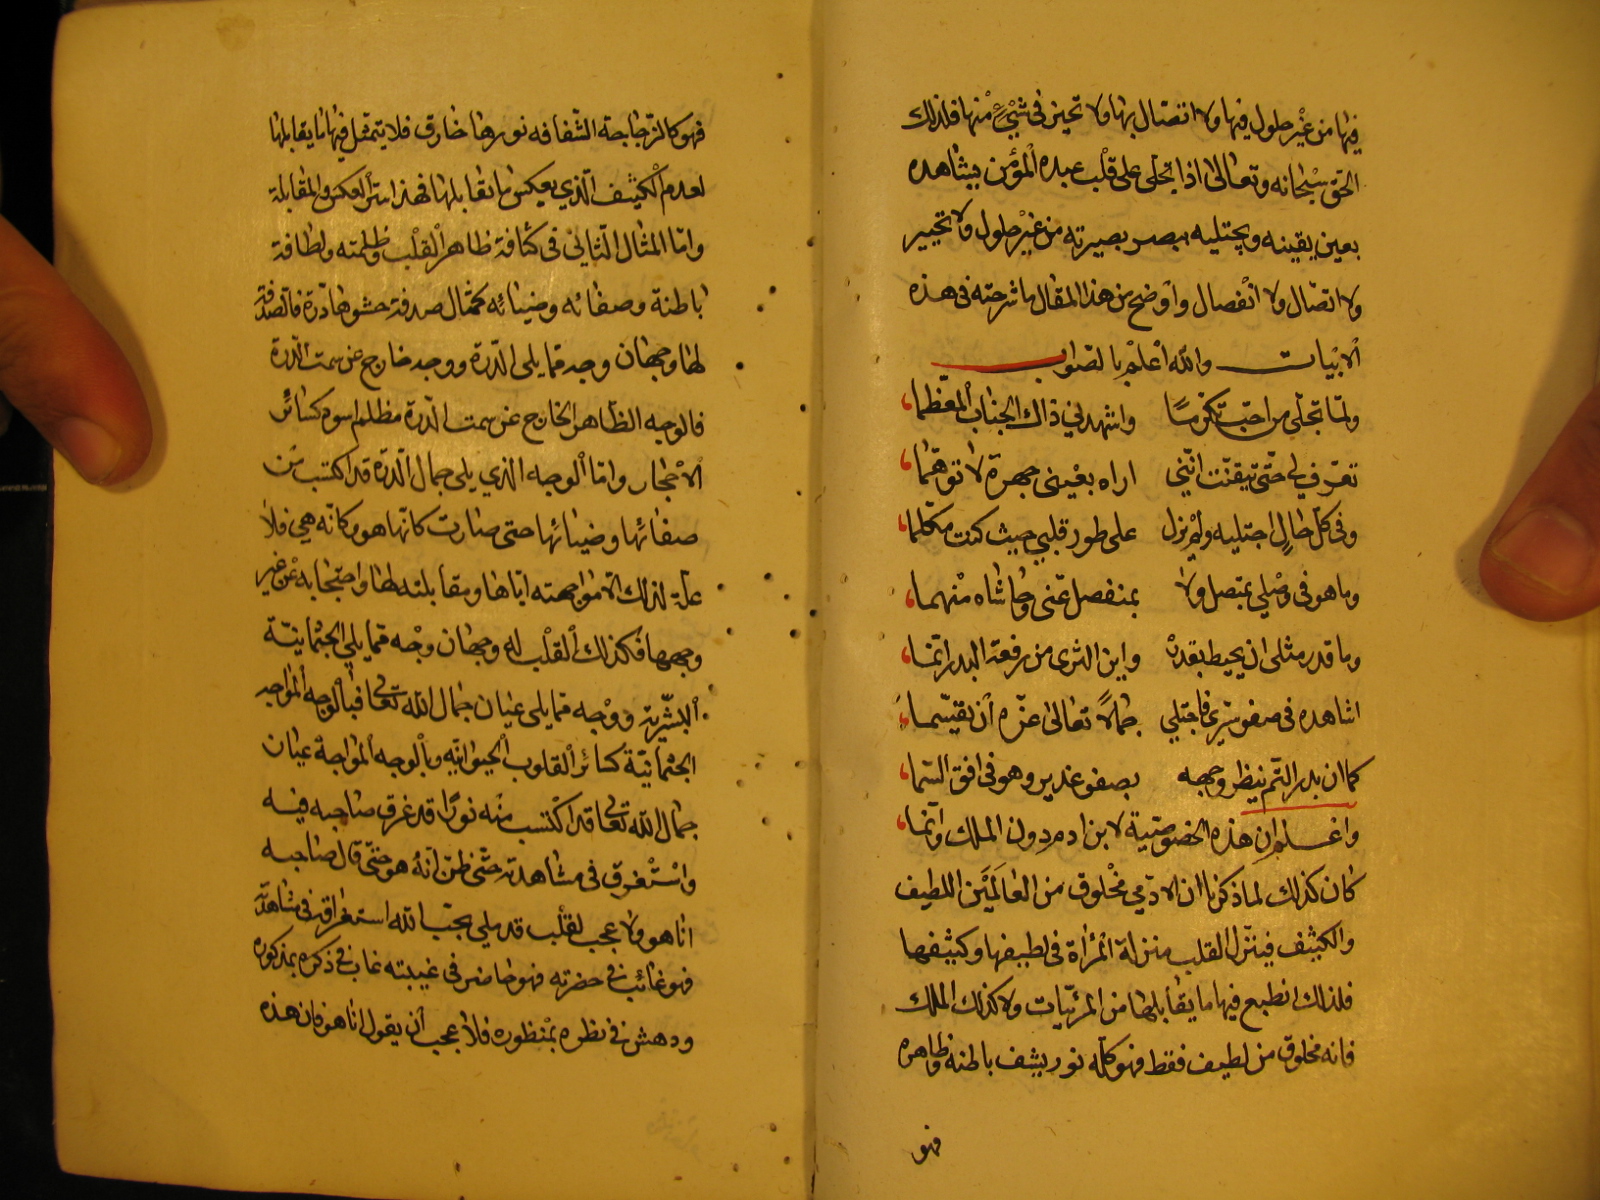 فيها من غير حلول فيها ولا اتصال بها ولا تحيز في شيء منها فلذلك
الحق سبحانه وتعالى اذا تجلى على قلب عبده المؤمن يشاهده
بعين يقينه ويجتليه ببصر بصيرته من غير حلول ولا تحيز
ولا اتصال ولا انفصال واوضح من هذا المقال ما شرحته في هذه
الابيات والله اعلم بالصواب
ولما تجلى من احب تكرما واشهدني ذاك الجناب المعظما
تعرف لي حتى تيقنت انني اراه بعيني جهرة لا توهما
وفي كل حال اجتليه ولم يزل على طور قلبي حيث كنت مكلما
وما هو في وصلي بمتصل ولا بمنفصل عني وحاشاه منهما
وما قدر مثلي ان يحيط بقدره واين الثرى من رفعة البدر انما
اشاهده في صفو سري فاجتلي جمالا تعالى عزه ان يقسما
كما ان بدر التم ينظر وجهه بصفو غدير وهو في افق السما
واعلم ان هذه الخصوصية لابن ادم دون الملك وانما
كان كذلك لما ذكرنا ان الادمي مخلوق من العالمين اللطيف
والكثيف فينزل القلب منزلة المرأة في لطيفها وكثيفها
فلذلك انطبع فيها ما يقابلها من المرئيات ولا كذلك الملك
فانه مخلوق من لطيف فقط فهو كله نور يشف باطنه وظاهره
فهو
فهو كالزجاجة الشفافه نورها خارق فلا يتمثل فيها ما يقابلها
لعدم الكثيف الذي يعكس ما تقابلها فهذا سر العكس والمقابلة
واما المثال الثاني في كثافة ظاهر القلب وظلمته ولطافة
باطنة وصفائه وضيائه كمثال صدفة حشوها درة فالصدفة
لها وجهان وجه مما يلي الدرة ووجه خارج عن سمت الدرة
فالوجه الظاهر الخارج عن سمت الدرة مظلم اسود كسائر
الاحجار واما الوجه الذي يلي جمال الدرة قد اكتسب من
صفائها وضيائها حتى صارت كانها هو وكانه هي فلا
علة لذلك الا مواجهته اياها ومقابلته لها واحتجابه عن غير
وجهها فكذلك القلب له وجهان وجه مما يلي الجثمانية
البشرية ووجه مما يلي عيان جمال الله تعالى فبالوجه المواجه
الجثمانية كسائر القلوب الحيوانية وبالوجه المواجهة عيان
جمال الله تعالى قد اكتسب منه نورا قد غرق صاحبه فيه
واستغرق في مشاهدته حتى ظن انه هو حتى قال صاحبه
انا هو ولا عجب لقلب قد ملي بحب الله استغراقه في مشاهدة
فهو غائب في حضرته فهو حاضر في غيبته غاب في ذكره بمذكوره
ودهش في نظره بمنظوره فلا عجب أن يقول انا هو فان هذه